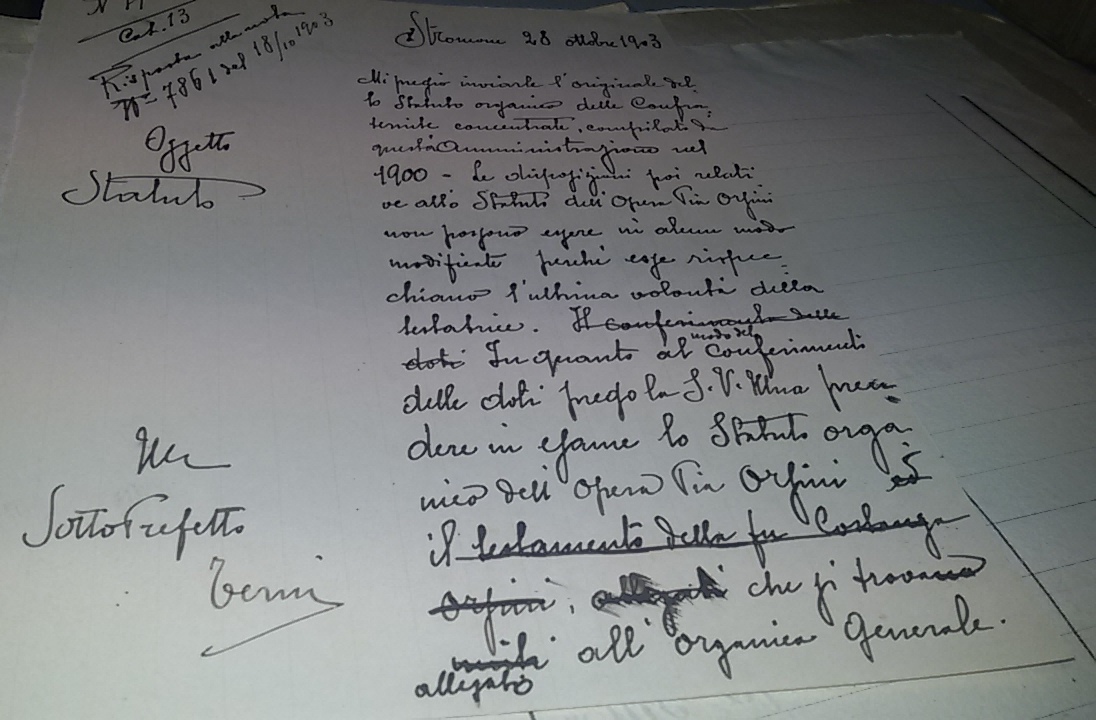 Cat. 13
Risposta alla nota
N= 7861 del 18/10 1903
Oggetto
Statuto
Stroncone 28 ottobre 1903
Mi pregio inviarle l'originale del
lo Statuto organico delle Confra
ternite concentrate, compilato da
questa Amministrazione nel
1900 - Le disposizioni poi relati
ve allo Statuto dell'Opera Pia Orsini
non possono essere in alcun modo
modificate perchè esse rispec
chiano l'ultima volontà della
testatrice. Il conferimento delle
doti In quanto al modo del conferimenti
delle doti prego la S.V. Illma pren
dere in esame lo Statuto orga
nico dell'Opera Pia Orsini ed
il testamento della fu Costanza
Orsini, allegati che si trovano
allegato all'organico Generale.
Sotto Prefetto
Terni